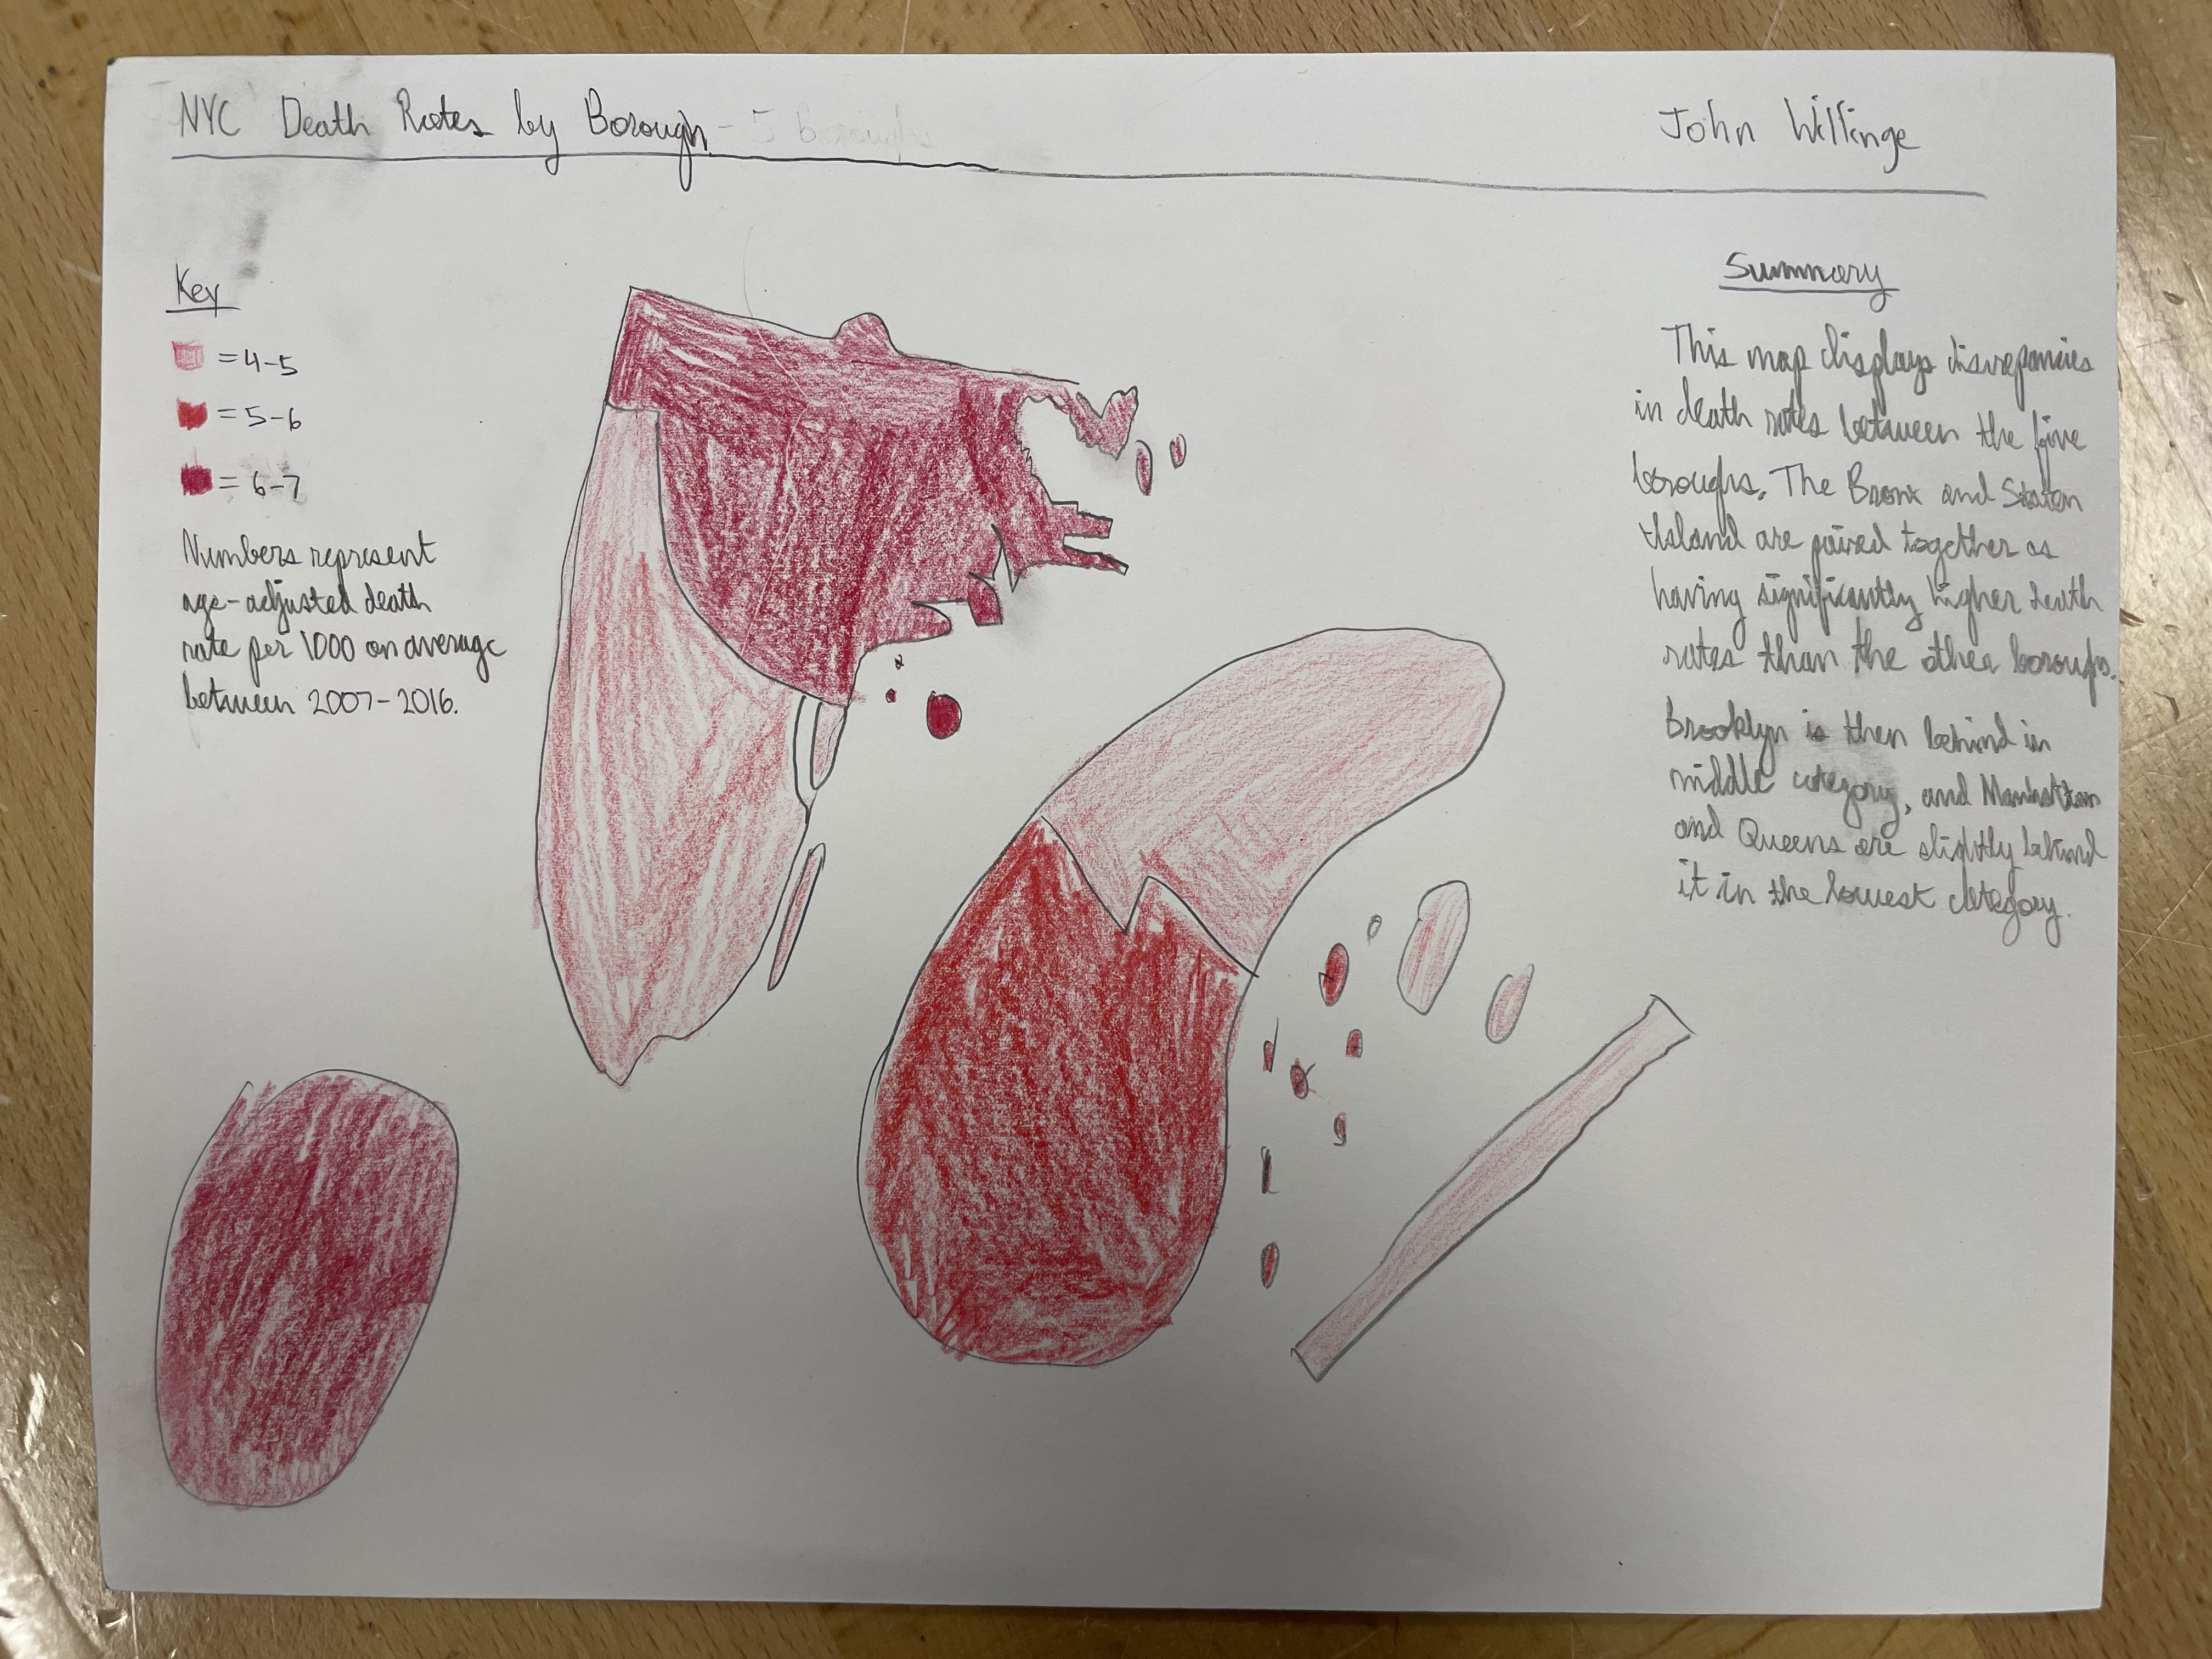 NYC Death Rates by Borough
John Willinge
Key
= 4-5
= 5-6
= 6-7
Numbers represent
age-adjusted death
rate per 1000 on average
between 2007-2016.
Summary
This map displays disrepancies
in death rates between the five
boroughs. The Bronx and Staten
Island are paired together as
having significantly higher death
rates than the other boroughs.
Brooklyn is then behind in
middle category, and Manhattan
and Queens are slightly behind
it in the lowest category.